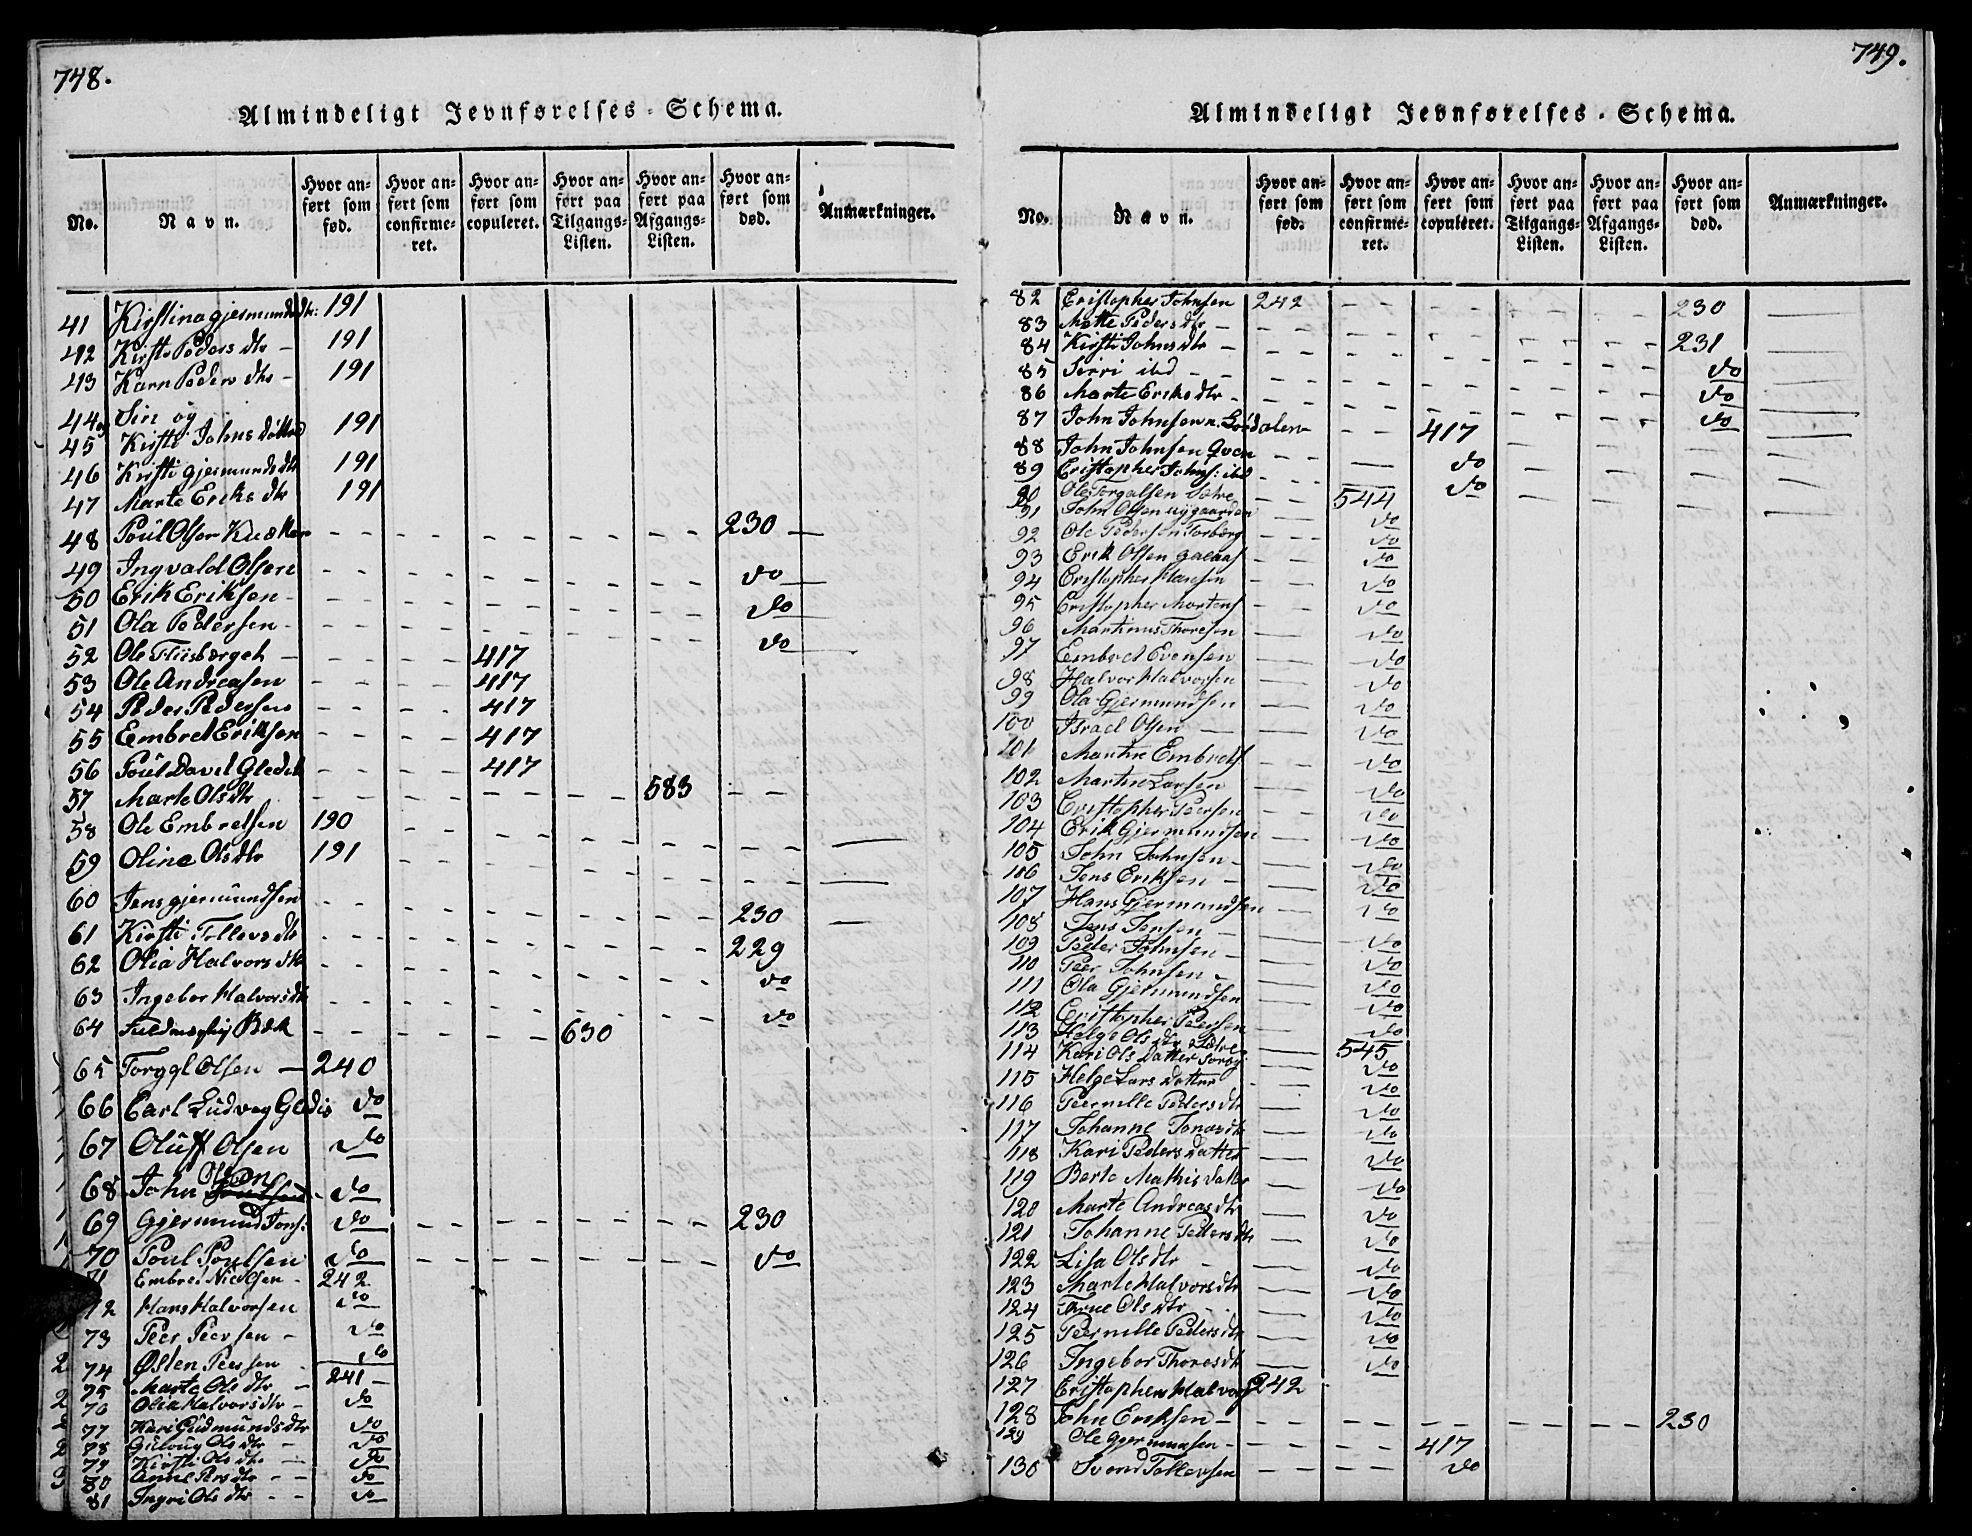 748.
Almindeligt Jevnførelses-Schema.
No.
Navn.
Hvor anført som fød.
Hvor anført som confirmeret.
Hvor anført som copuleret.
Hvor anført paa Tilgangs-Listen.
Hvor anført paa Afgangs-Listen.
Hvor anført som død.
Anmærkninger.
41 Kirstina gjermundsdtr: 191
42 Kirsti Peders dtr - 191
43 Karn Peders dtr - 191
44 og Siri og
45 Kirsti Johns døttre 191
46 Kirsti gjermunds dtr 191
47 Marte Eriks dtr 191
48 Poul Olsen 230
49 Ingvald Olsen do
50 Erik Eriksen do
51 Ola Pedersen do
52 Ole Fliisberget 417
53 Ole Andreasen 417
54 Peder Pedersen 417
55 Embret Eriksen 417
56 Poul David 417
57 Marte Ols dtr 583
58 Ole Embretsen 190
59 Oline Ols dtr 191
60 Jens gjermundsen 230
61 Kirsti Tollevs dtr 229
62 Olia Halvors dtr do
63 Ingebor Halvors dtr do
64 Bæk 630
65 Torggl Olsen - 240
66 Carl Ludvog Gledis do
67 Oluff Olsen do
68 John Olsen do
69 Gjermund Jons: do 230
70 Poul Poulsen do do
71 Embret Nielsen - 242
72 Hans Halvorsen do
73 Peer Peersen - do
74 Østen Peersen do
75 Marte Ols dtr - 241
76 Olia Halvors dtr - do
77 Kari Gudmunds dtr do
78 Guloug Ols dtr - do
79 Kirsti Ols dtr - do
80 Anne Pers dtr - do
81 Ingri Ols dtr - do
749.
Almindeligt Jevnførelses-Schema.
No.
Navn.
Hvor anført som fød.
Hvor anført som confirmeret.
Hvor anført som copuleret.
Hvor anført paa Tilgangs-Listen.
Hvor anført paa Afgangs-Listen.
Hvor anført som død.
Anmærkninger.
82 Cristopher Johnsen 242 230
83 Mette Peders dtr
84 Kirsti Johns dtr 231
85 Sirri ibd do
86 Marte Eriks dtr do
87 John Johnsen 417 do
88 John Johnsen Qven do
89 Cristopher Johns: ibd do
90 Ole Torgalsen Sætre 544
91 John Olsen nygaarden do
92 Ole Pedersen Torberg do
93 Erik Olsen galaas do
94 Cristopher Hansen do
95 Cristopher Mortens do
96 Martinus Thoresen do
97 Embret Evensen do
98 Halvor Halvorsen do
99 Ola Gjermundsen do
100 Israel Olsen do
101 Martin Embrets do
102 Martin Larsen do
103 Cristopher Peersen do
104 Erik Gjermundsen do
105 John Johnsen do
106 Jens Eriksen do
107 Hans Gjermundsen do
108 Jens Jensen do
109 Peder Johnsen do
110 Peer Johnsen do
111 Ola Gjermundsen do
112 Cristopher Peersen do
113 Helge Ols dtr Sætre 545
114 Kari Ols Datter do
115 Helge Lars datter do
116 Peernille Peders dtr do
117 Johanne Jonas dtr do
118 Kari Peders datter do
119 Berte Mathis datter do
120 Marte Andreas dtr do
121 Johanne Peders dtr do
122 Lisa Ols dtr do
123 Marte Halvors dtr do
124 Ols dtr do
125 Peernille Peders dtr do
126 Ingebor Thores dtr do
127 Cristopher Halvors 242
128 John Eriksen - 230
129 Ole gjermunsen - 417
130 Svend Tollevsen do